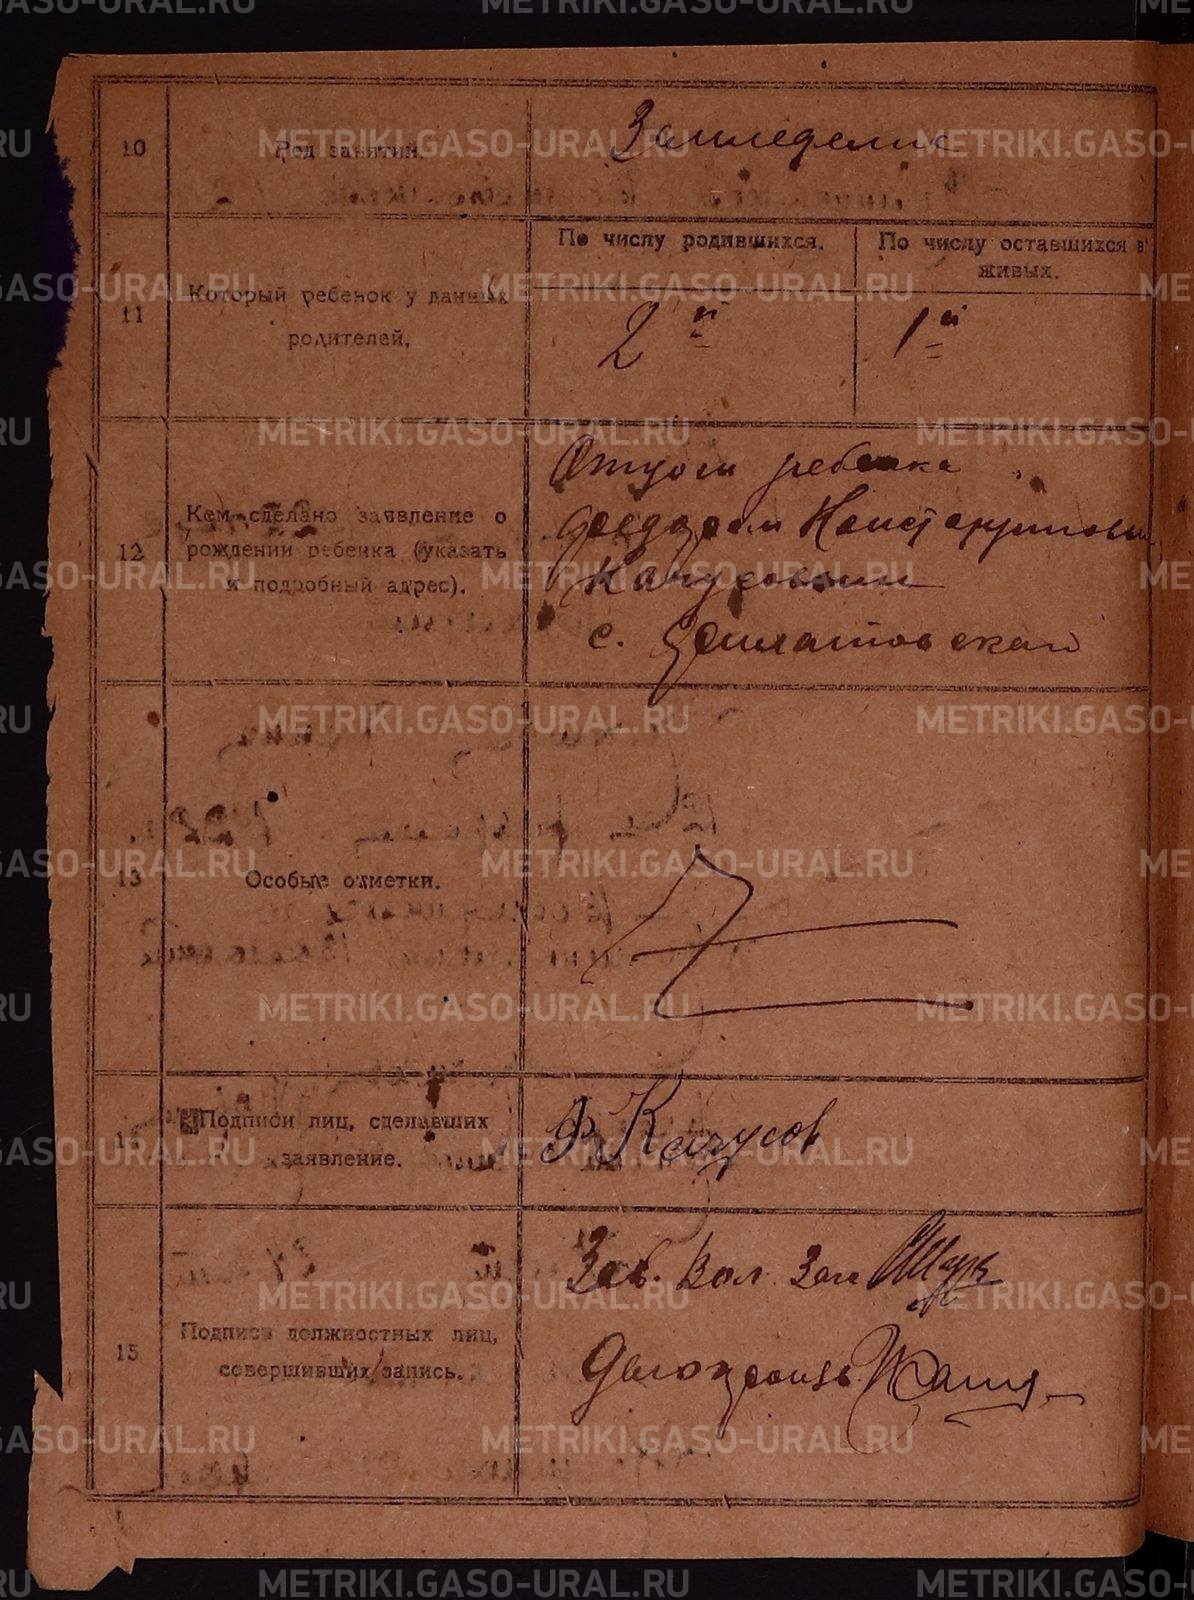 10
Род занятий.
Земледелие
11
Который ребенок у данных
родителей.
По числу родившихся.
По числу оставшихся в
живых.
2й
1й
12
Кем сделано заявление о
рождении ребенка (указать
и подробный адрес).
Отцом ребенка
Федором
Качусовым
с.
13
Особые отметки.
14
Подписи лиц, сделавших
заявление.
Ф Качусов
15
Подписи должностных лиц,
совершивших запись.
Зав. Вол.
Делопроизв.
METRIKI.GASO-URAL.RU